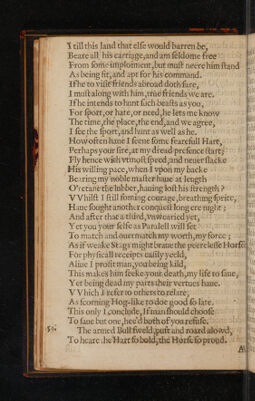 I till this land that else would barren be,
Beate all his carriage, and am seldome free
From some imploiment, but must neere him stand
As being fit, and apt for his command.
If he to visit friends abroad doth fare,
I must along with him, true friends we are,
If he intends to hunt such beasts as you,
For sport, or hate, or need, he lets me know
The time, the place, the end, and we agree,
I see the sport, and hunt as well as he.
How often haue I seene some fearefull Hart,
Perhaps your sire, at my dread presence start;
Fly hence with vtmost speed, and neuer slacke
His willing pace, when I vpon my backe
Bearing my noble master haue at length
O'retane the lubber, hauing lost his strength?
VVhilst I still foming courage, breathing sprite,
Haue sought another conquest long ere night;
And after that a third, vnwearied yet,
Yet you your selfe as Paralell will set
To match and ouermatch my worth, my force;
As if weake Stags might braue the peerelesse Horse
For physicall receipts easily yeeld,
Aliue I profit man, you being kild,
This makes him seeke your death, my life to saue,
Yet being dead my parts their vertues haue.
VVhich I refer to others to relate,
As scorning Hog-like to doe good so late.
This only I conclude, If man should choose
To saue but one, hee'd both of you refuse.
The armed Bull sweld, puft and roard alowd,
To heare the Hart so bold, the Horse so proud.